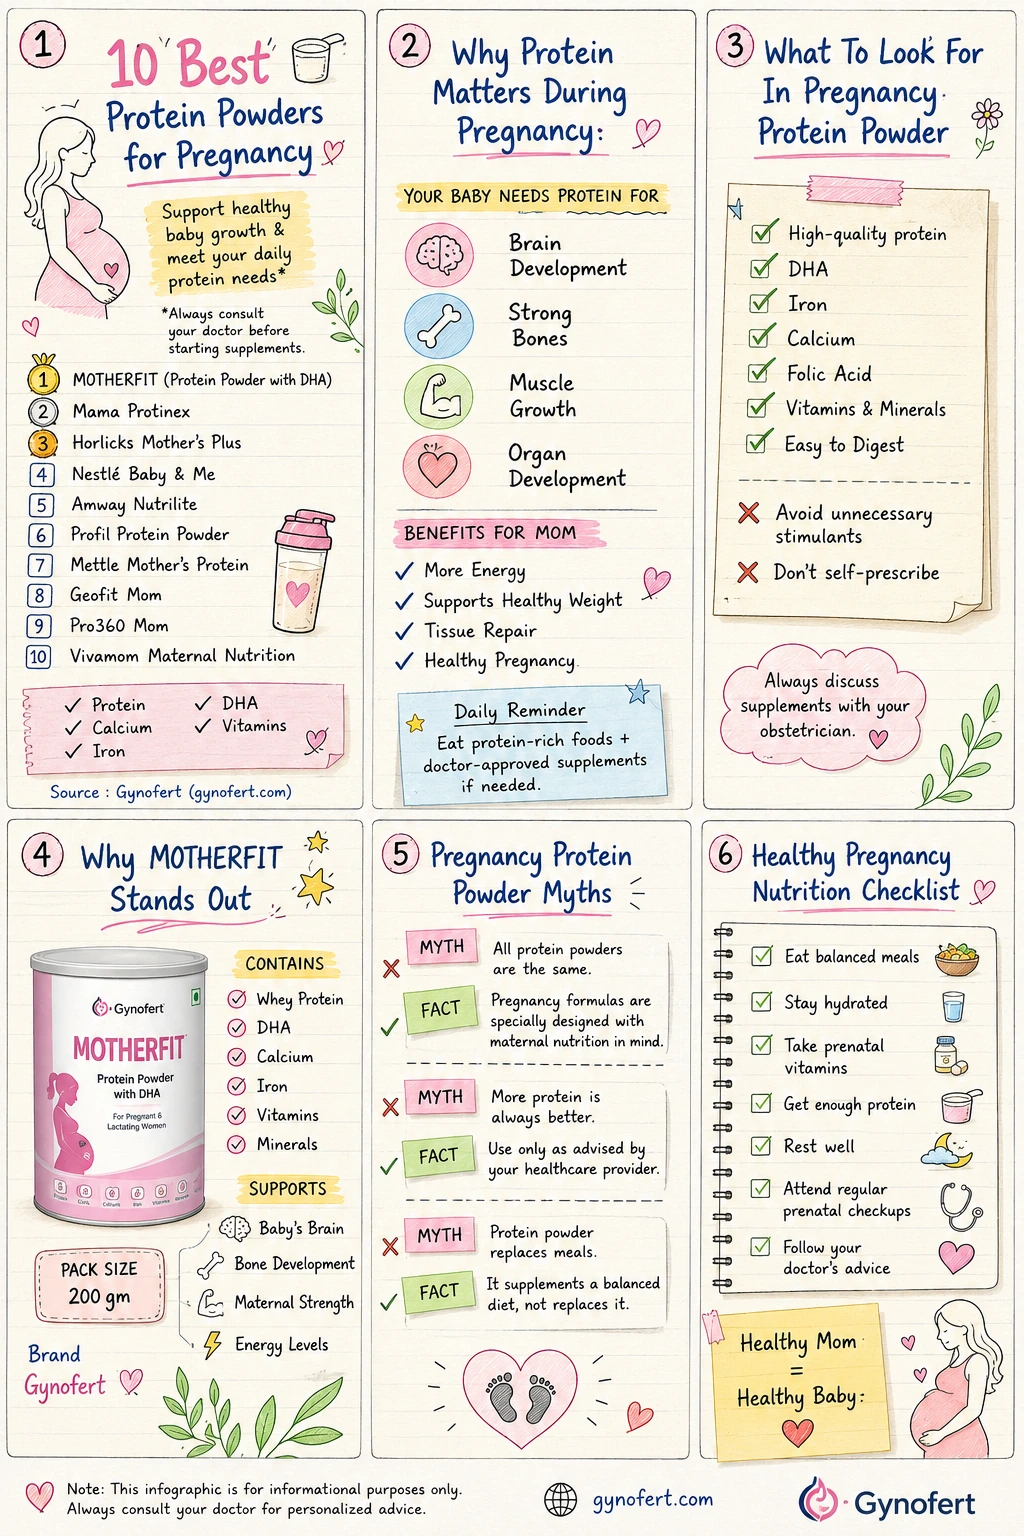 1
10 Best
Protein Powders
for Pregnancy
Support healthy
baby growth &
meet your daily
protein needs*
*Always consult
your doctor before
starting supplements.
1 MOTHERFIT (Protein Powder with DHA)
2 Mama Protinex
3 Horlicks Mother's Plus
4 Nestlé Baby & Me
5 Amway Nutrilite
6 Profil Protein Powder
7 Mettle Mother's Protein
8 Geofit Mom
9 Pro360 Mom
10 Vivamom Maternal Nutrition
✓ Protein ✓ DHA
✓ Calcium ✓ Vitamins
✓ Iron
Source : Gynofert (gynofert.com)
2
Why Protein
Matters During
Pregnancy:
YOUR BABY NEEDS PROTEIN FOR
Brain
Development
Strong
Bones
Muscle
Growth
Organ
Development
BENEFITS FOR MOM
✓ More Energy
✓ Supports Healthy Weight
✓ Tissue Repair
✓ Healthy Pregnancy
Daily Reminder
Eat protein-rich foods +
doctor-approved supplements
if needed.
3
What To Look For
In Pregnancy
Protein Powder
High-quality protein
DHA
Iron
Calcium
Folic Acid
Vitamins & Minerals
Easy to Digest
Avoid unnecessary
stimulants
Don't self-prescribe
Always discuss
supplements with your
obstetrician.
4
Why MOTHERFIT
Stands Out
Gynofert
MOTHERFIT
Protein Powder
with DHA
For Pregnant &
Lactating Women
CONTAINS
Whey Protein
DHA
Calcium
Iron
Vitamins
Minerals
SUPPORTS
Baby's Brain
Bone Development
Maternal Strength
Energy Levels
PACK SIZE
200 gm
Brand
Gynofert
5
Pregnancy Protein
Powder Myths
MYTH
All protein powders
are the same.
FACT
Pregnancy formulas are
specially designed with
maternal nutrition in mind.
MYTH
More protein is
always better.
FACT
Use only as advised by
your healthcare provider.
MYTH
Protein powder
replaces meals.
FACT
It supplements a balanced
diet, not replaces it.
6
Healthy Pregnancy
Nutrition Checklist
Eat balanced meals
Stay hydrated
Take prenatal
vitamins
Get enough protein
Rest well
Attend regular
prenatal checkups
Follow your
doctor's advice
Healthy Mom
=
Healthy Baby:
Note: This infographic is for informational purposes only.
Always consult your doctor for personalized advice.
gynofert.com
Gynofert